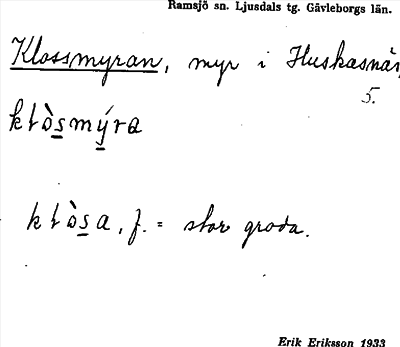 Ramsjö sn. Ljusdals tg. Gävleborgs län.
Klossmyran, myr i Huskasnäs,
5.
kłòsmýra
kłòsa, f. = stor groda.
Erik Eriksson 1933